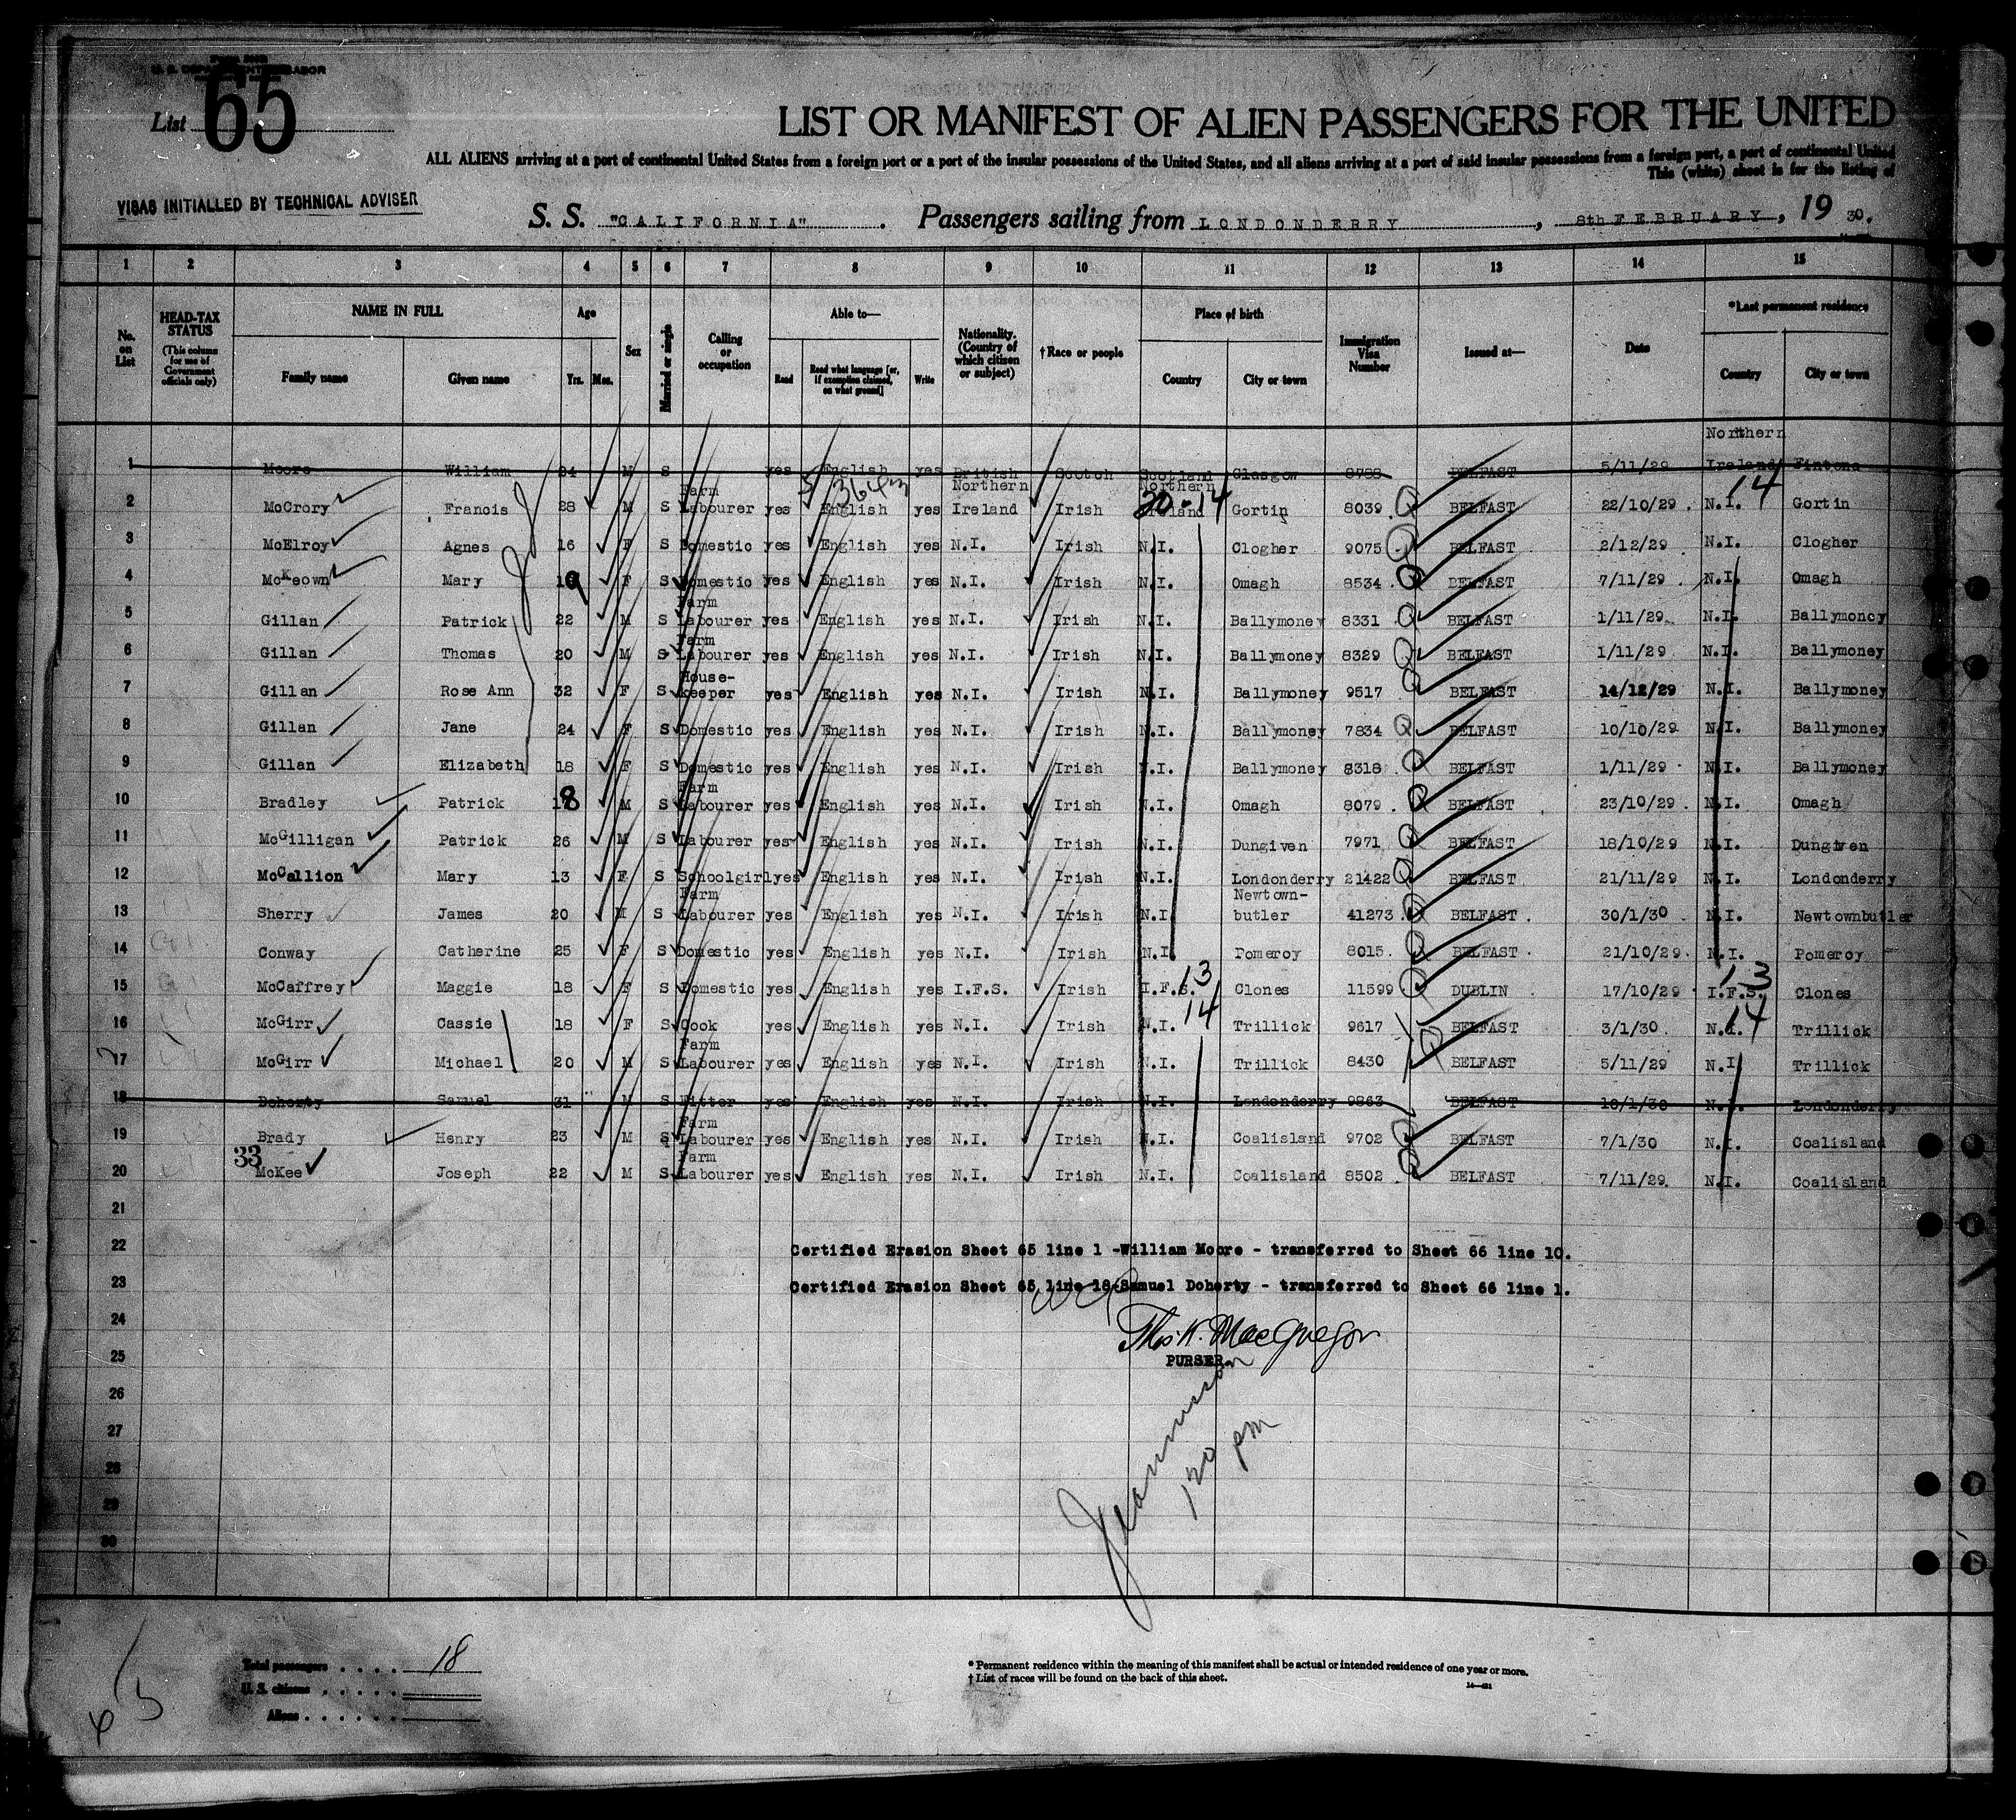 U. S. DEPARTMENT OF LABOR
List 65
LIST OR MANIFEST OF ALIEN PASSENGERS FOR THE UNITED
ALL ALIENS arriving at a port of continental United States from a foreign port or a port of the insular possessions of the United States, and all aliens arriving at a port of said insular possessions from a foreign port, a port of continental United
This (white) sheet is for the listing of
VISAS INITIALLED BY TECHNICAL ADVISER
S. S. "CALIFORNIA". Passengers sailing from LONDONDERRY, 8th FEBRUARY, 19 30.
1 2 3 4 5 6 7 8 9 10 11 12 13 14 15
No. on List
HEAD-TAX STATUS (This column for use of Government officials only)
NAME IN FULL
Family name Given name
Age
Yrs. Mos.
Sex
Married or single
Calling or occupation
Able to—
Read Read what language [or, if exemption claimed, on what ground] Write
Nationality. (Country of which citizen or subject)
†Race or people
Place of birth
Country City or town
Immigration Visa Number
Issued at—
Date
*Last permanent residence
Country City or town
1 Moore William 24 M S yes English yes British Scotch Scotland Glasgow 8788 BELFAST 5/11/29 Northern Ireland Fintona
2 McCrory Francis 28 M S Farm Labourer yes English yes Northern Ireland Irish Northern Ireland 20-14 Gortin 8039 BELFAST 22/10/29. N.I. 14 Gortin
3 McElroy Agnes 16 F S Domestic yes English yes N.I. Irish N.I. Clogher 9075 BELFAST 2/12/29 N.I. Clogher
4 McKeown Mary 19 F S Domestic yes English yes N.I. Irish N.I. Omagh 8534 BELFAST 7/11/29 N.I. Omagh
5 Gillan Patrick 22 M S Farm Labourer yes English yes N.I. Irish N.I. Ballymoney 8331 BELFAST 1/11/29. N.I. Ballymoney
6 Gillan Thomas 20 M S Farm Labourer yes English yes N.I. Irish N.I. Ballymoney 8329 BELFAST 1/11/29 N.I. Ballymoney
7 Gillan Rose Ann 32 F S House-keeper yes English yes N.I. Irish N.I. Ballymoney 9517 BELFAST 14/12/29 N.I. Ballymoney
8 Gillan Jane 24 F S Domestic yes English yes N.I. Irish N.I. Ballymoney 7834 BELFAST 10/10/29 N.I. Ballymoney
9 Gillan Elizabeth 18 F S Domestic yes English yes N.I. Irish N.I. Ballymoney 8318 BELFAST 1/11/29 N.I. Ballymoney
10 Bradley Patrick 18 M S Farm Labourer yes English yes N.I. Irish N.I. Omagh 8079 BELFAST 23/10/29. N.I. Omagh
11 McGilligan Patrick 26 M S Labourer yes English yes N.I. Irish N.I. Dungiven 7971 BELFAST 18/10/29 N.I. Dungiven
12 McCallion Mary 13 F S Schoolgirl yes English yes N.I. Irish N.I. Londonderry 21422 BELFAST 21/11/29 N.I. Londonderry
13 Sherry James 20 M S Farm Labourer yes English yes N.I. Irish N.I. Newtown-butler 41273. BELFAST. 30/1/30 N.I. Newtownbutler
14 Conway Catherine 25 F S Domestic yes English yes N.I. Irish N.I. Pomeroy 8015. BELFAST. 21/10/29. N.I. Pomeroy
15 McCaffrey Maggie 18 F S Domestic yes English yes I.F.S. Irish I.F.S. 13 Clones 11599 DUBLIN 17/10/29 I.F.S. 13 Clones
16 McGirr Cassie 18 F S Cook yes English yes N.I. Irish N.I. 14 Trillick 9617 BELFAST 3/1/30 N.I. 14 Trillick
17 McGirr Michael 20 M S Farm Labourer yes English yes N.I. Irish N.I. Trillick 8430 BELFAST 5/11/29 N.I. Trillick
18 Doherty Samuel 31 M S Fitter yes English yes N.I. Irish N.I. Londonderry 9863 BELFAST 10/1/30 N.I. Londonderry
19 Brady Henry 23 M S Farm Labourer yes English yes N.I. Irish N.I. Coalisland 9702 BELFAST 7/1/30 N.I. Coalisland
33
20 McKee Joseph 22 M S Farm Labourer yes English yes N.I. Irish N.I. Coalisland 8502. BELFAST 7/11/29 N.I. Coalisland
21
22 Certified Erasion Sheet 65 line 1 -William Moore - transferred to Sheet 66 line 10.
23 Certified Erasion Sheet 65 line 18-Samuel Doherty - transferred to Sheet 66 line 1.
24 Thos K. MacGregor
25 PURSER.
26
27
28
29
30
120 pm
Total passengers . . . . 18
U. S. citizens . . . . .
Aliens . . . . . .
* Permanent residence within the meaning of this manifest shall be actual or intended residence of one year or more.
† List of races will be found on the back of this sheet.